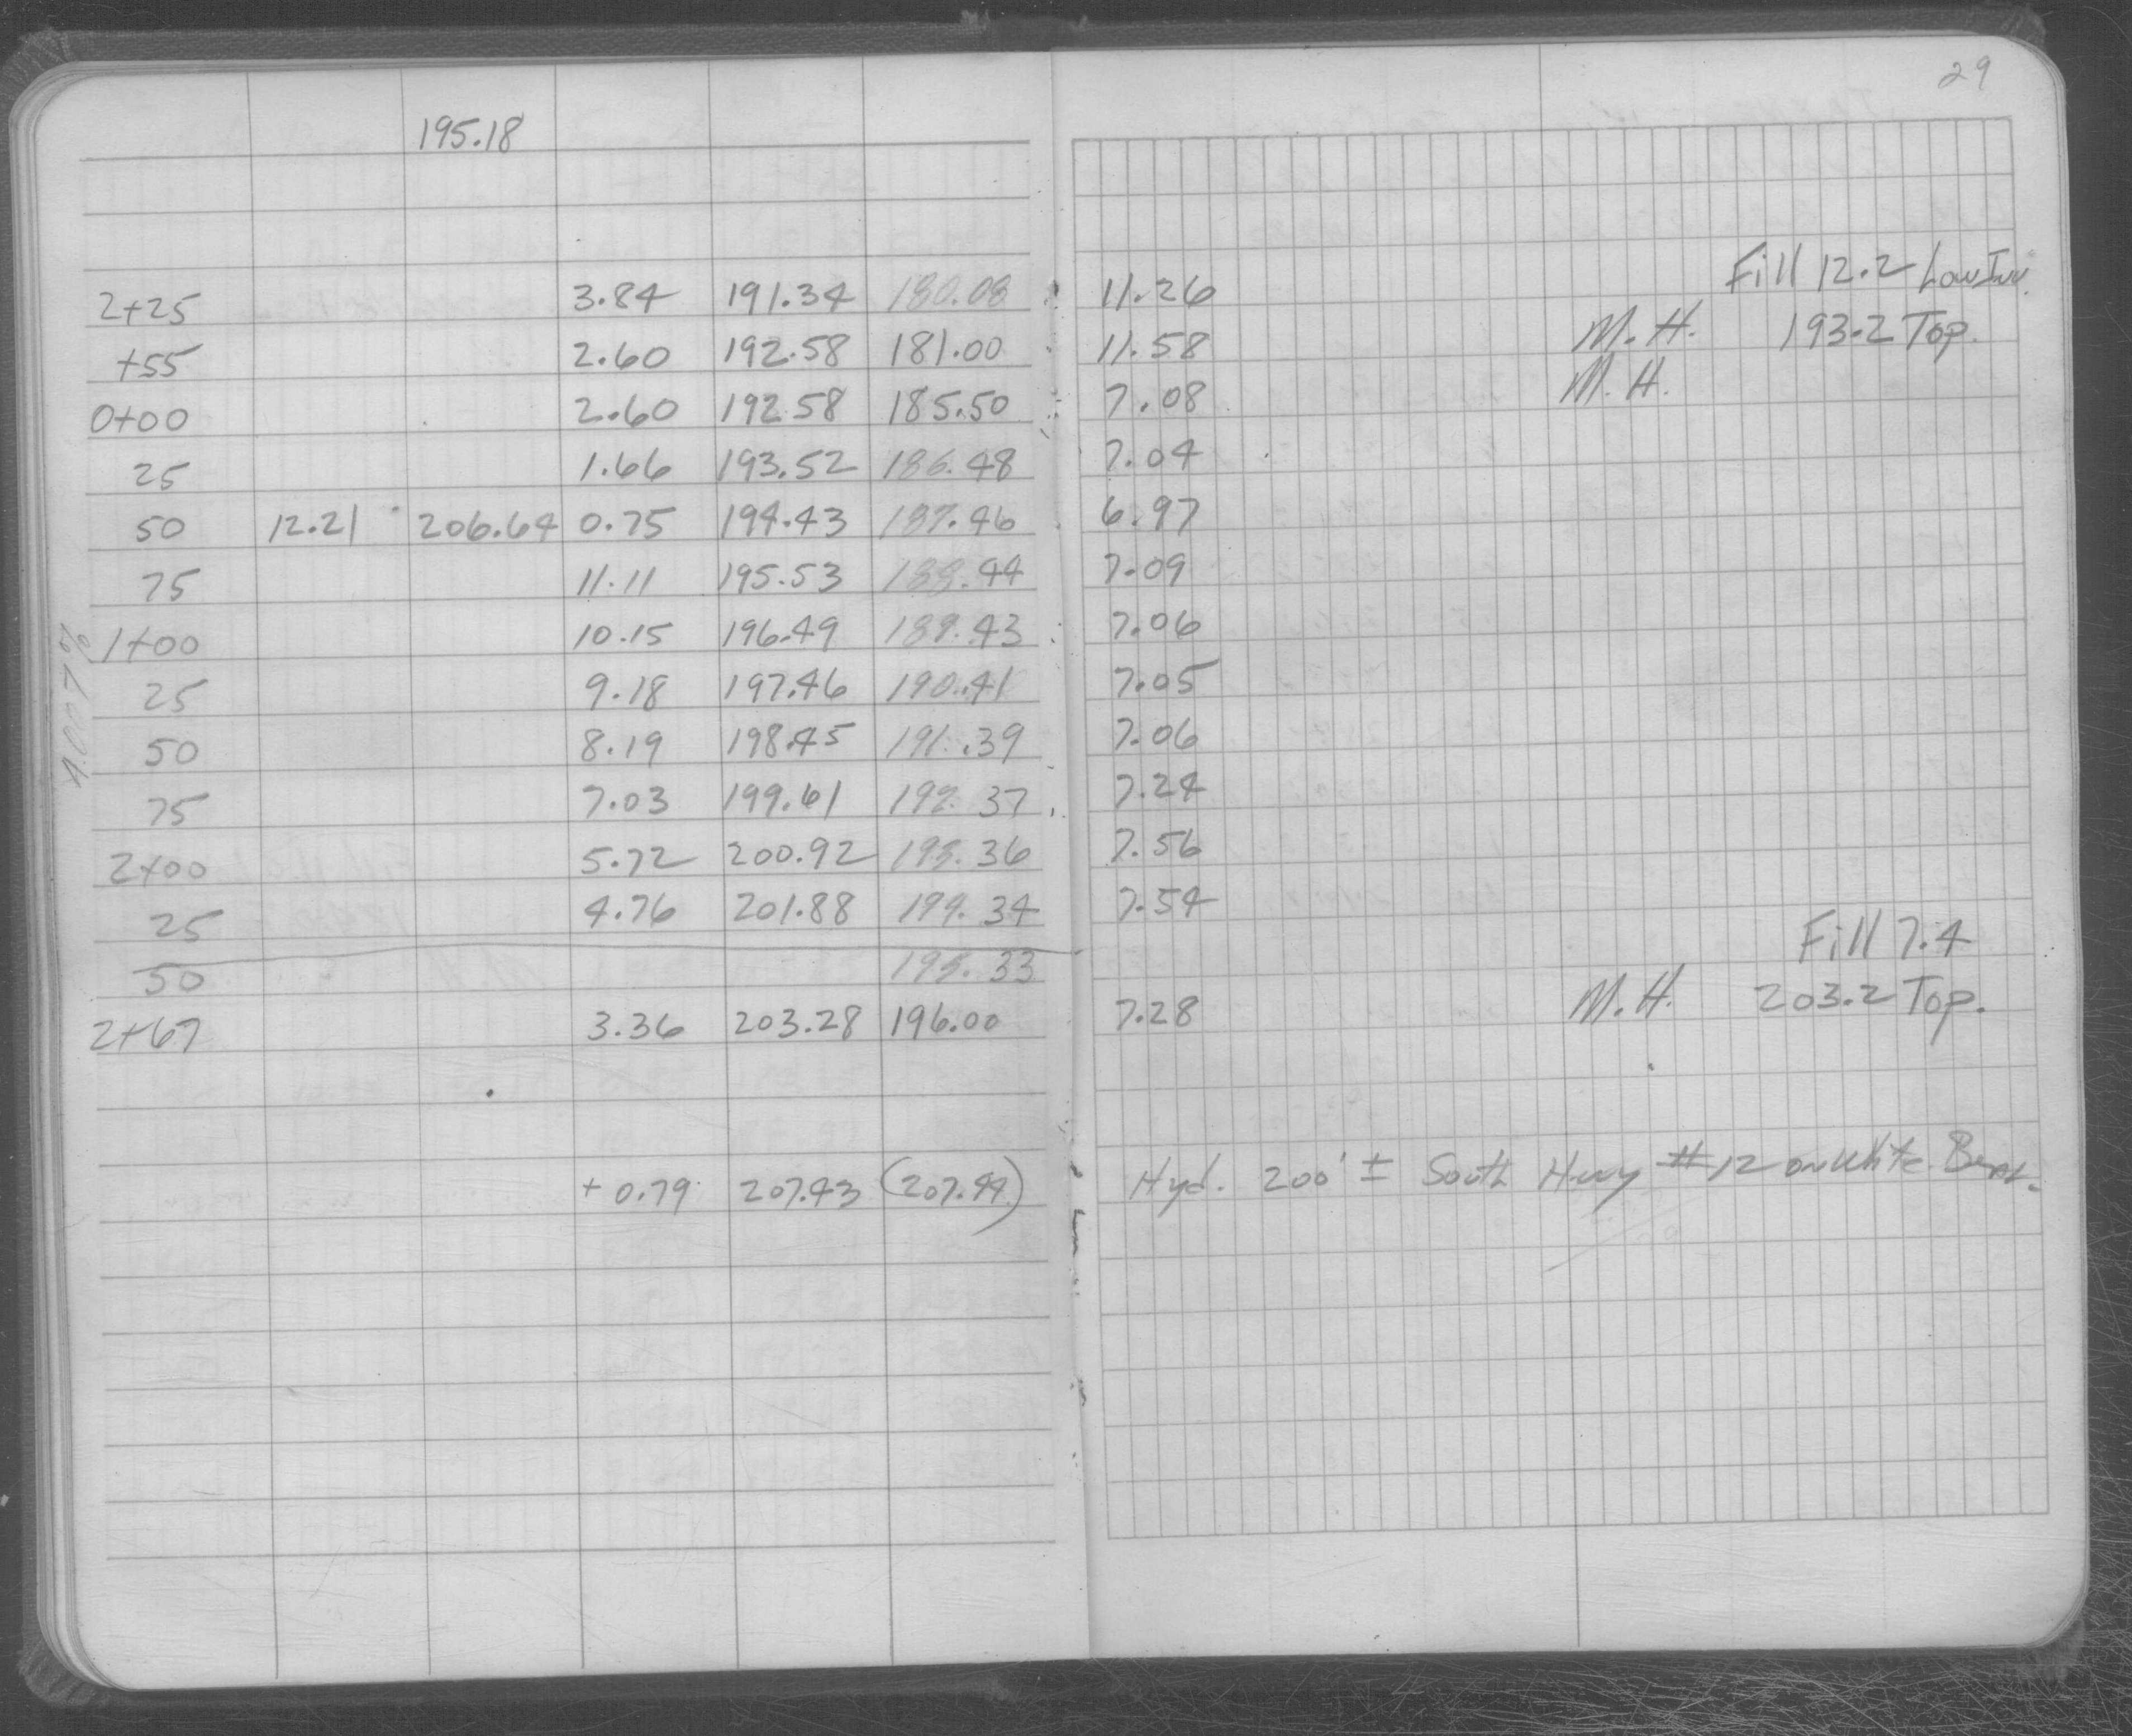 29
195.18
Fill 12.2 Low Inv.
2+25 3.84 191.34 180.08 11.26
M.H. 193.2 Top.
+55 2.60 192.58 181.00 11.58
M.H.
0+00 2.60 192.58 185.50 7.08
25 1.66 193.52 186.48 7.04
50 12.21 206.64 0.75 194.43 187.46 6.97
75 11.11 195.53 188.44 7.09
1+00 10.15 196.49 189.43 7.06
25 9.18 197.46 190.41 7.05
50 8.19 198.45 191.39 7.06
75 7.03 199.61 192.37 7.24
2+00 5.72 200.92 193.36 7.56
25 4.76 201.88 194.34 7.54
Fill 7.4
50 195.33
2+67 3.36 203.28 196.00 7.28 M.H. 203.2 Top.
+0.79 207.43 (207.44) Hyd. 200' ± South Hwy #12 on White